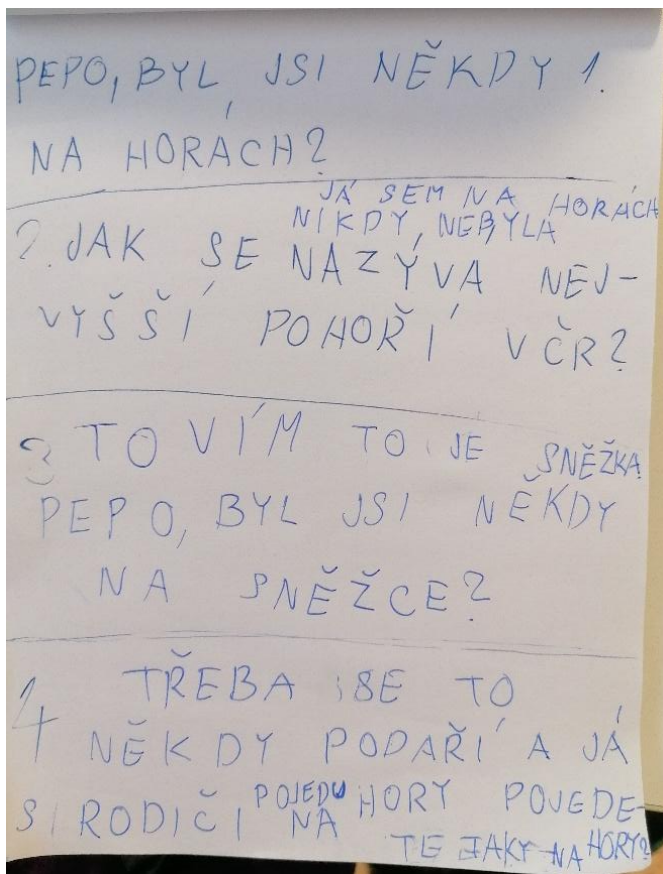 PEPO, BYL JSI NĚKDY 1.
NA HORÁCH?
JÁ SEM NA HORÁCH
NIKDY NEBYLA
2. JAK SE NAZÝVÁ NEJ-
VYŠŠÍ POHOŘÍ V ČR?
3 TO VÍM TO JE SNĚŽKA
PEPO, BYL JSI NĚKDY
NA SNĚŽCE?
4 TŘEBA SE TO
NĚKDY PODAŘÍ A JÁ
S RODIČI POJEDU NA HORY POJEDE-
TE TAKY NA HORY?